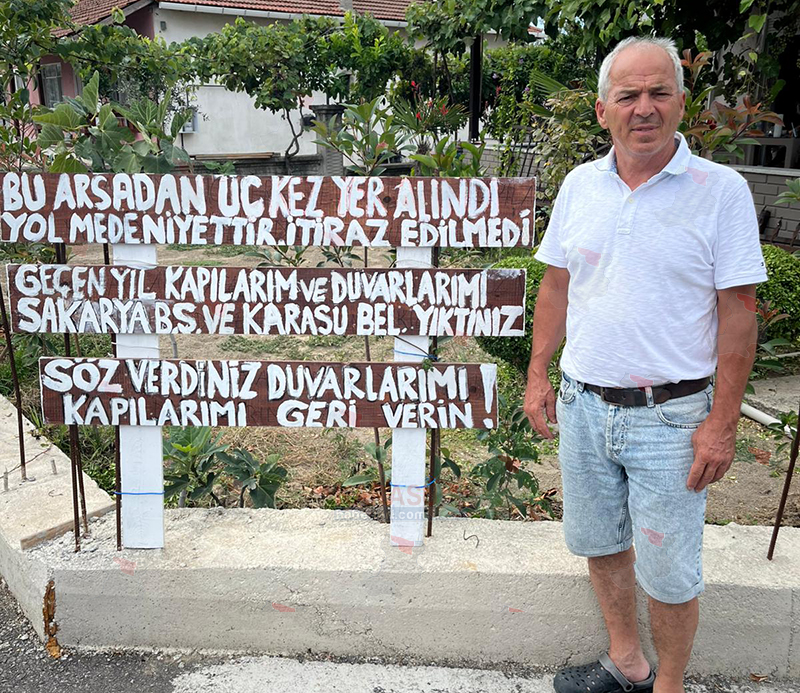 BU ARSADAN ÜÇ KEZ YER ALINDI
YOL MEDENİYETTİR.İTİRAZ EDİLMEDİ
GEÇEN YIL KAPILARIM VE DUVARLARIMI
SAKARYA B.S. VE KARASU BEL.. YIKTINIZ
SÖZ VERDİNİZ DUVARLARIMI
KAPILARIMI GERİ VERİN !